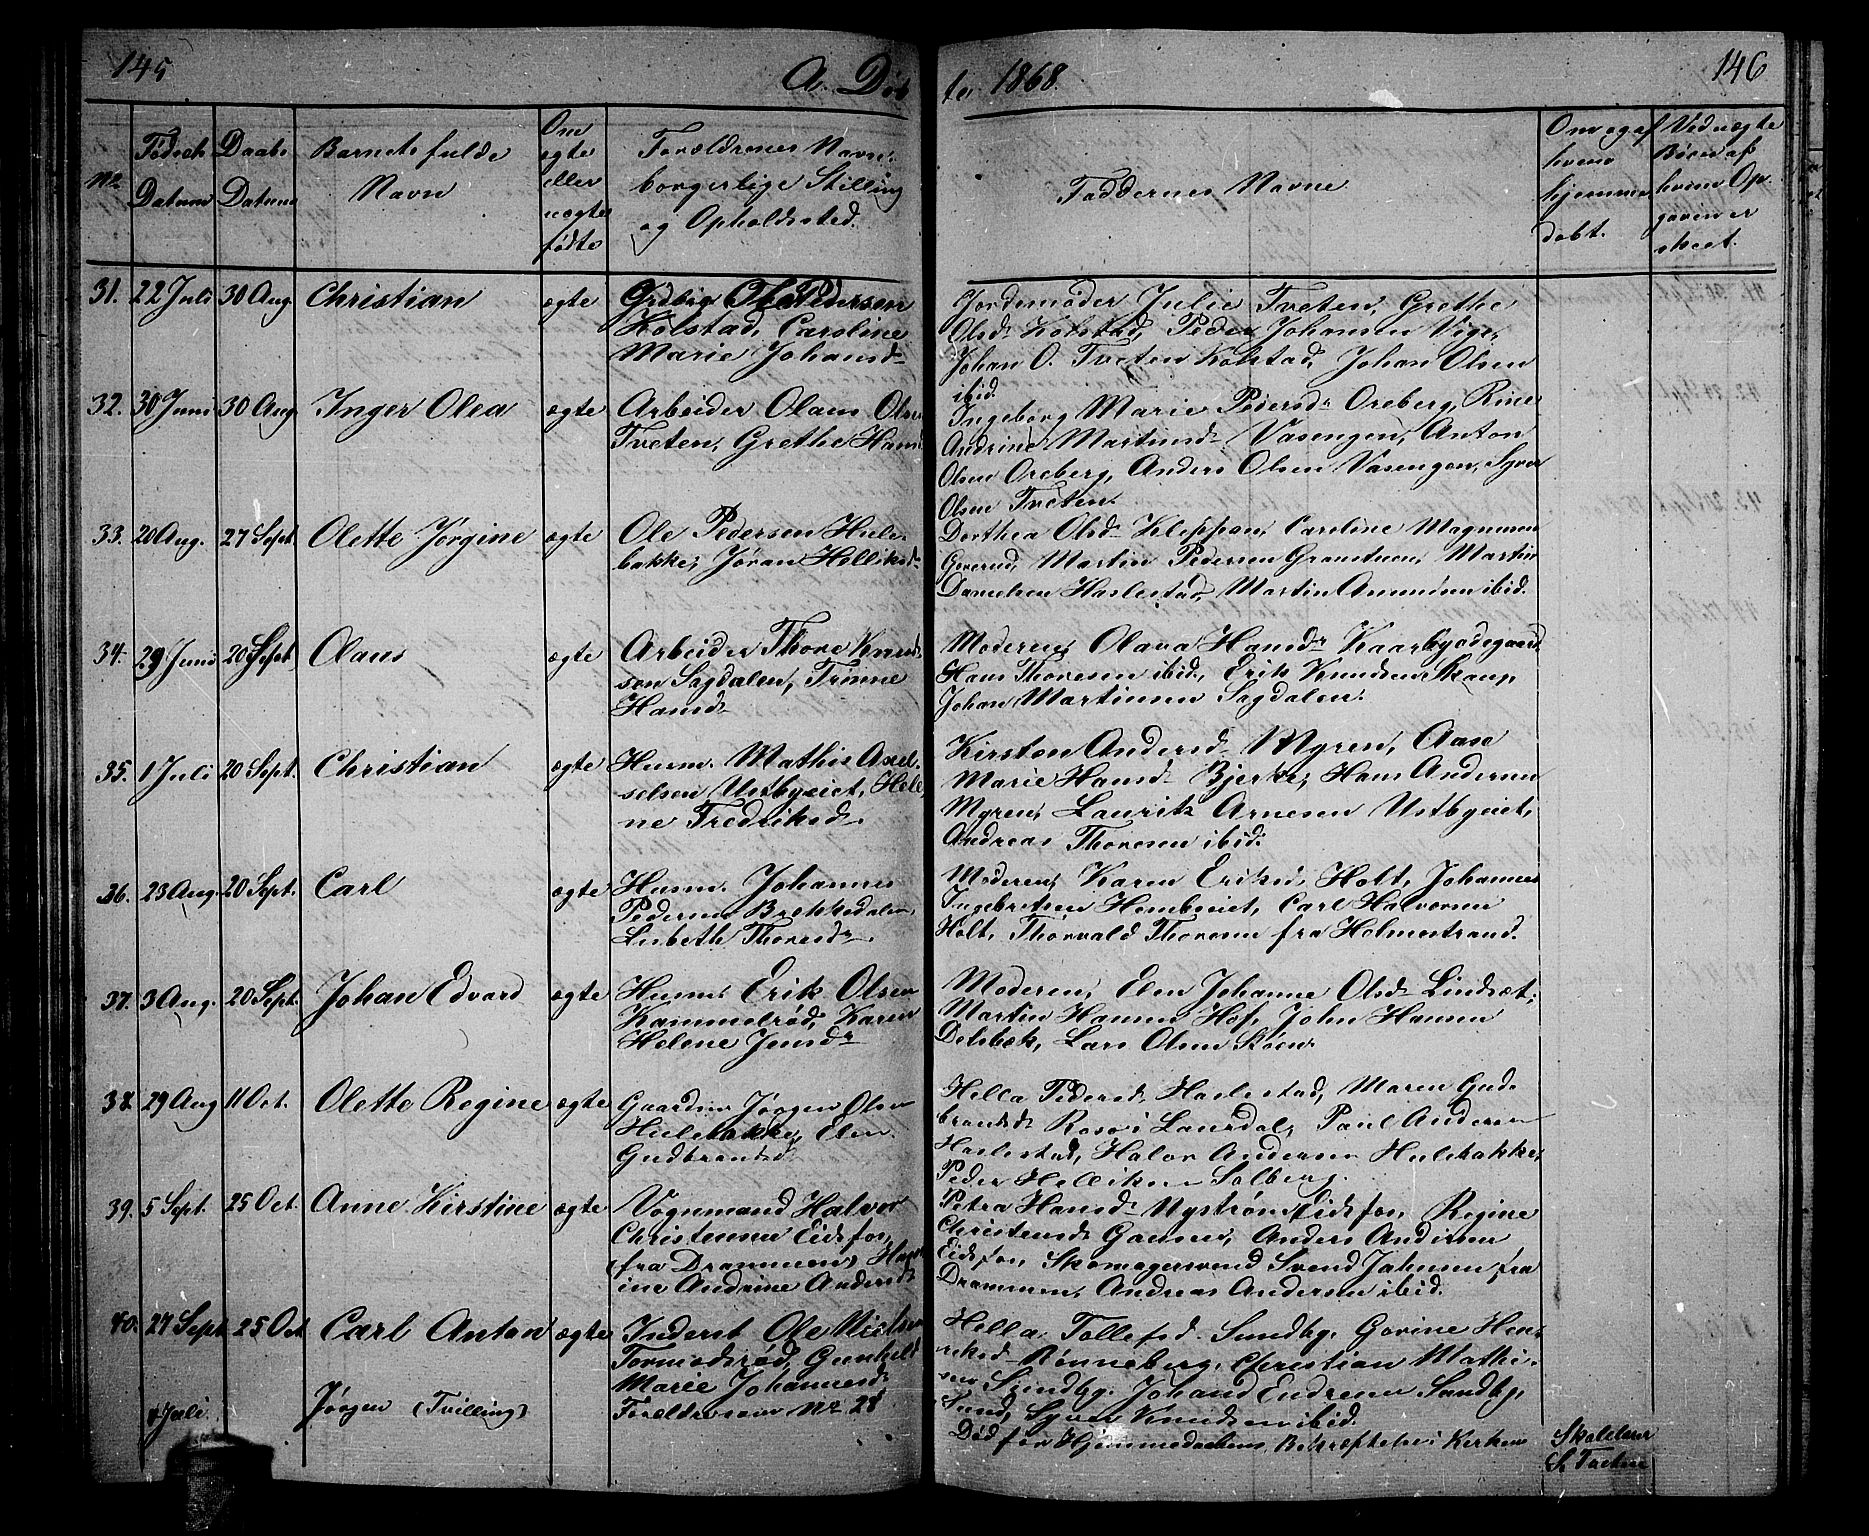 145
A. Døb
te 1868.
146
No
Fødsels Datum
Daabs Datum
Barnets fulde Navn
Om ægte eller uægte fødte
Forældrenes Navn, borgerlige Stilling og Opholdssted.
Faddernes Navne
Om og af hvem hjemmedøbt.
Ved uægte Børn af hvem Opgaven er skeet.
31. 22 Juli 30 Aug Christian ægte Grdbrgr Ole Pedersen
Kolstad, Caroline
Marie Johansd
Jordemoder Julie Tveten, Grethe
Olsd Kolstad, Peder Johansen
Johan O. Tveten Kolstad, Johan Olsen
ibid
32. 30 Juni 30 Aug Inger Olea ægte Arbeider Olaus Olsen
Tveten, Grethe Hansd
Ingeborg Marie Pedersdr Oreberg, Rine
Andrine Martinsd Vasengen, Anton
Olsen Oreberg, Anders Olsen Vasengen, Syver
Olsen Tveten.
33. 20 Aug. 27 Sept Olette Jørgine ægte Ole Pedersen Hule-
bakke, Jøran Helliksd
Dorthea Olsd Kleppan, Caroline Magnusen
Goverud, Martin Pedersen Granstuen, Martin
Danielsen Haslestad, Martin Amundsen ibid.
34. 29 Juni 20 Sept Olaus ægte Arbeider Thore Knud-
sen Sagdalen, Trønne
Hansd
Moderen, Olava Hansdr Kaarbyødegaard
Hans Thoresen ibid, Erik Knudsen Skaug
Johan Martinsen Sagdalen.
35. 1 Juli 20 Sept. Christian ægte Husm. Mathis Axel-
selsen Ustbyeiet, Hele-
ne Fredriksd
Kirsten Andersd Myren, Aase
Marie Hansd Bjerke, Hans Andersen
Myren, Lauritz Arnesen Ustbyeiet,
Andreas Thoresen ibid.
36. 23 Aug. 20 Sept. Carl ægte Husm. Johannes
Pedersen Brekkedalen,
Lisbeth Thoresdr.
Moderen, Karen Eriksd, Holt, Johannes
Ingebretsen Hembseiet, Carl Halvorsen
Holt, Thorvald Thoresen fra Holmestrand.
37. 3 Aug. 20 Sept. Johan Edvard ægte Husm. Erik Olsen
Kammelrød, Karen
Helene Jensdr
Moderen, Elen Johanne Olsd Lindsæt,
Martin Hansen Hof, John Hansen
Delebæk, Lars Olsen Skoen.
38. 29 Aug 11 Oct. Olette Regine ægte Gaardm Jørgen Olsen
Hulebakke, Elen
Gudbrandsd
Hella Pedersd Haslestad, Maren Gud-
brandsd Rosø i Laurdal, Paul Andersen
Haslestad, Halvor Andersen Hulebakke,
Peder Helliksen Solberg.
39. 5 Sept. 25 Oct. Anne Kirstine ægte Vognmand Halvor
Christensen Eidsfos,
(fra Drammen)
ine Andrine Andersd
Petra Hansd Nystrøm Eidsfos, Regine
Christensd Gausen, Anders Andersen
Eidsfos, Skomagersvend Svend Johnsen fra
Drammen, Andreas Andersen ibid.
40. 27 Sept 25 Oct Carl Anton ægte Inderst Ole Nielsen
Tormodsrød, Gunhild
Marie Johannesd
Hella Tollefsd Sundby, Govine Hen-
riksd Rønneberg, Christian Mathi-
sen Sundby, Johand Endresen Sundby,
Sund, Syver Knudsen ibid.
4 Juli Jørgen (Tvilling) Forældre som No 28
Død før Hjemmedaabens Bekræftelse i Kirken
Skolelærer
S. Tveten